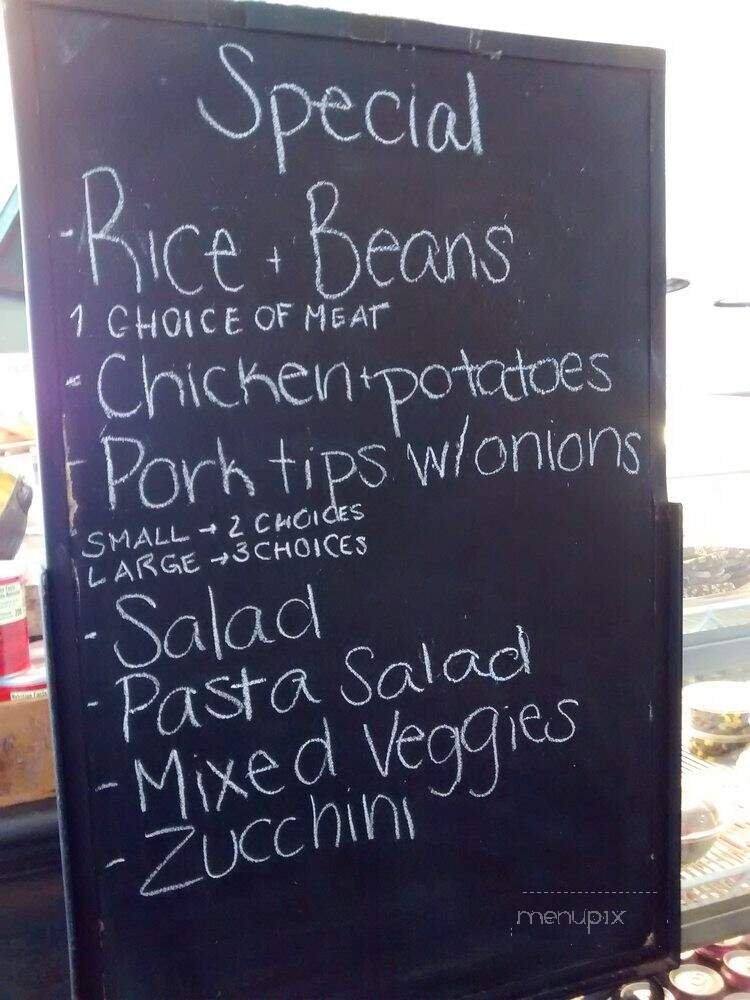 Special
- Rice + Beans
1 CHOICE OF MEAT
- Chicken + potatoes
- Pork tips w/onions
SMALL → 2 CHOICES
LARGE → 3 CHOICES
- Salad
- Pasta Salad
- Mixed Veggies
- Zucchini
menupix